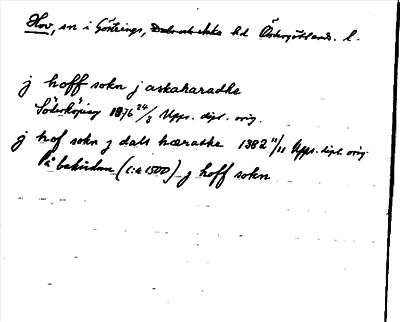 Hov, sn i Göstrings, hd Östergötland. l.
j hoff sokn j askaharadhe
Söderköping 1376 24/3 Upps. dipl. orig.
j hof sokn j dals hæradhe 1382 11/11 Upps. dipl. orig.
På baksidan (c:a 1500) j hoff sokn